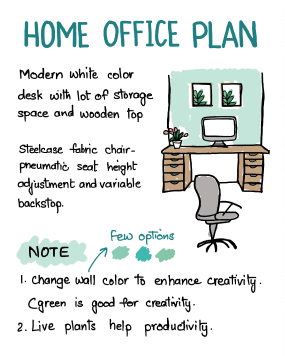 HOME OFFICE PLAN
Modern white color
desk with lot of storage
space and wooden top
Steelcase fabric chair-
pneumatic seat height
adjustment and variable
backstop.
Few options
NOTE
1. Change wall color to enhance creativity.
Cgreen is good for creativity.
2. Live plants help productivity.